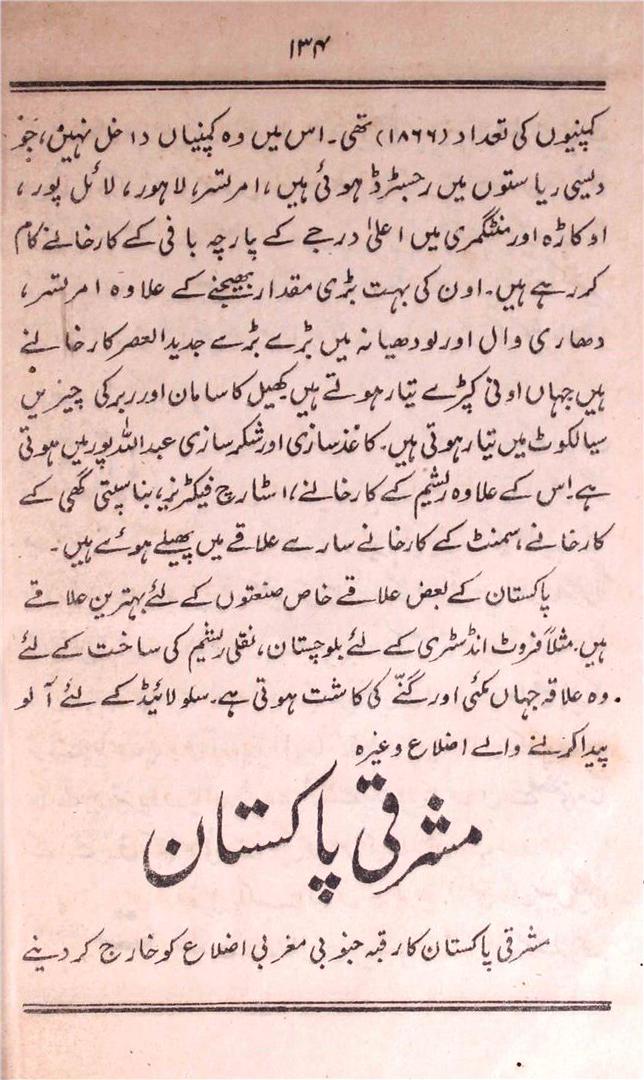 ۱۳۴
کمپنیوں کی تعداد (۱۸۶۶) تھی۔ اس میں وہ کمپنیاں داخل نہیں، جو
دیسی ریاستوں میں رجسٹرڈ ہوئی ہیں، امرتسر، لاہور، لائل پور،
اوکاڑہ اور منٹگمری میں اعلیٰ درجے کے پارچہ بافی کے کارخانے کام
کر رہے ہیں۔ اون کی بہت بڑی مقدار بھیجنے کے علاوہ امرتسر،
دھاری وال اور لودھیانہ میں بڑے بڑے جدید العصر کارخانے
ہیں جہاں اونی کپڑے تیار ہوتے ہیں کھیل کا سامان اور ربر کی چیزیں
سیالکوٹ میں تیار ہوتی ہیں۔ کاغذ سازی اور شکر سازی عبداللہ پور میں ہوتی
ہے۔ اس کے علاوہ ریشم کے کارخانے، اسٹارچ فیکٹریز، بناسپتی گھی کے
کارخانے، سمنٹ کے کارخانے سارے علاقے میں پھیلے ہوئے ہیں۔
پاکستان کے بعض علاقے خاص صنعتوں کے لئے بہترین علاقے
ہیں۔ مثلاً فروٹ انڈسٹری کے لئے بلوچستان، نقلی ریشم کی ساخت کے لئے
وہ علاقہ جہاں مکئی اور گنّے کی کاشت ہوتی ہے۔ سلولائیڈ کے لئے آلو
پیدا کرنے والے اضلاع وغیرہ
مشرقی پاکستان
مشرقی پاکستان کا رقبہ جنوبی مغربی اضلاع کو خارج کر دینے